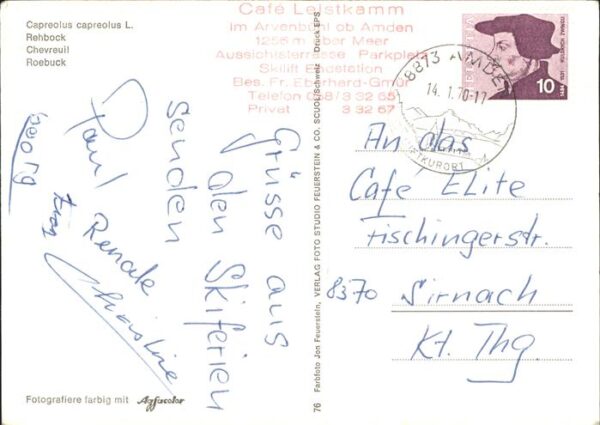 Capreolus capreolus L.
Rehbock
Chevreuil
Roebuck
Café Leistkamm
im Arvenbühl ob Amden
1256 m über Meer
Aussichtsterrasse Parkplatz
Skilift Endstation
Bes. Fr. Eberhard-Gmür
Telefon 058/3 32 65
Privat 3 32 67
HELVETIA
HULDRYCH ZWINGLI
1484 1531
10
8873 AMDEN
14.1.70-17
LUFTKURORT
Grüsse aus
den Skiferien
senden
Paul Renate
Georg
Christine
An das
Café Elite
Fischingerstr.
8370 Sirnach
Kt. Thg.
76 Farbfoto Jon Feuerstein, VERLAG FOTO STUDIO FEUERSTEIN & CO. SCUOL/Schweiz Druck EPS
Fotografiere farbig mit Agfacolor